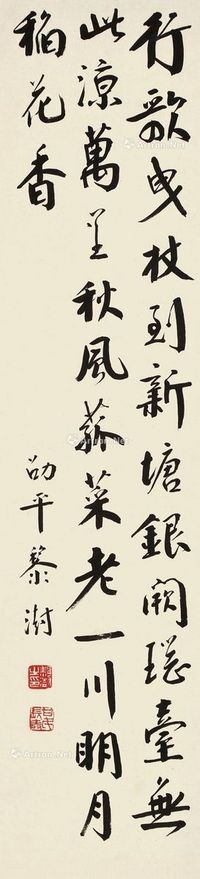 行歌曳杖到新塘銀闕瑤臺無
此涼萬里秋風菰菜老一川明月
稻花香
劭平黎澍